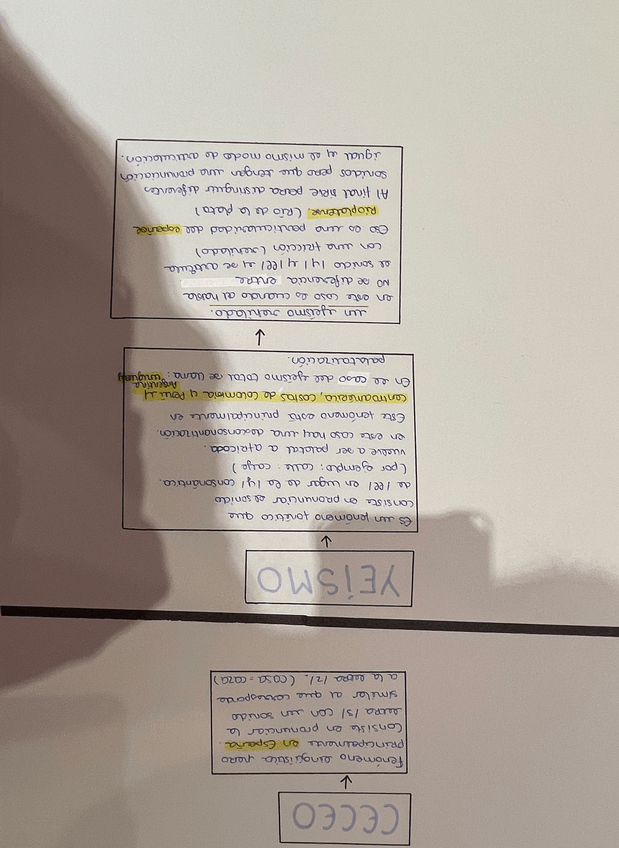 CECEO
Fenómeno lingüístico pero
principalmente en España.
Consiste en pronunciar la
letra /s/ con un sonido
similar al que corresponde
a la letra /z/. (casa=caza)
YEÍSMO
Es un fenómeno fonético que
consiste en pronunciar el sonido
de /ll/ en lugar de la /y/ consonántica.
(por ejemplo: calle: caye)
vuelve a ser palatal a africada.
en este caso hay una desconsonantización.
Este fenómeno está principalmente en
centroamérica, costas de Colombia y Perú y
Argentina
Uruguay
En el caso del yeísmo total se llama:
palatalización.
un yeísmo rehilado.
en este caso es cuando al habla
no se diferencia entre
el sonido /y/ y /ll/ y se articula
con una fricción (rehilado)
Eso es una particularidad del español
Rioplatense. (Río de la Plata)
Al final sirve para distinguir diferentes
sonidos pero que tengan una pronunciación
igual y el mismo modo de articulación.